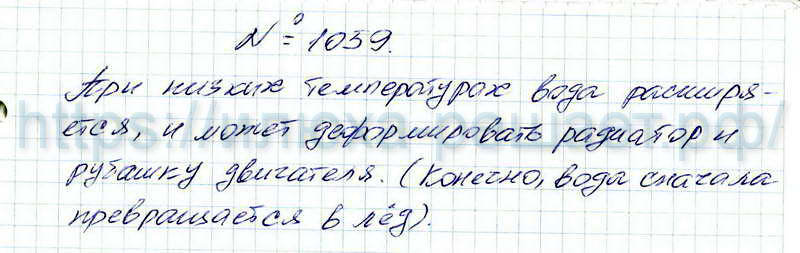 № 1039.
При низких температурах вода расширя-
ется, и может деформировать радиатор и
рубашку двигателя. (Конечно, вода сначала
превращается в лёд).